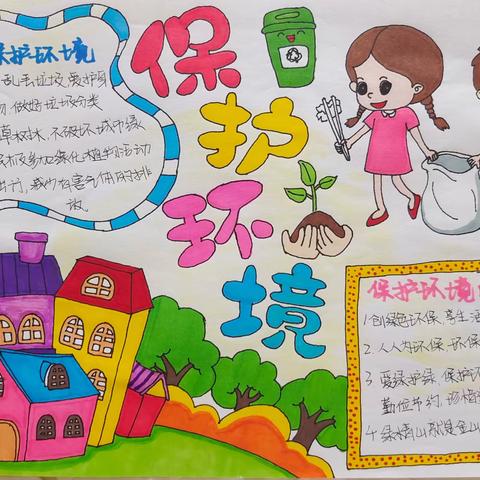 保护环境
保护环境
乱丢垃圾 爱护
物 做好垃圾分类
草树木，不破坏城市绿
积极参加绿化植物活动
出行，减少有害气体的排
放
保护环境
1 创绿色环保，享生活
2. 人人为环保 环保
3 爱绿护绿 保护环
勤俭节约，
4 绿水青山就是金山